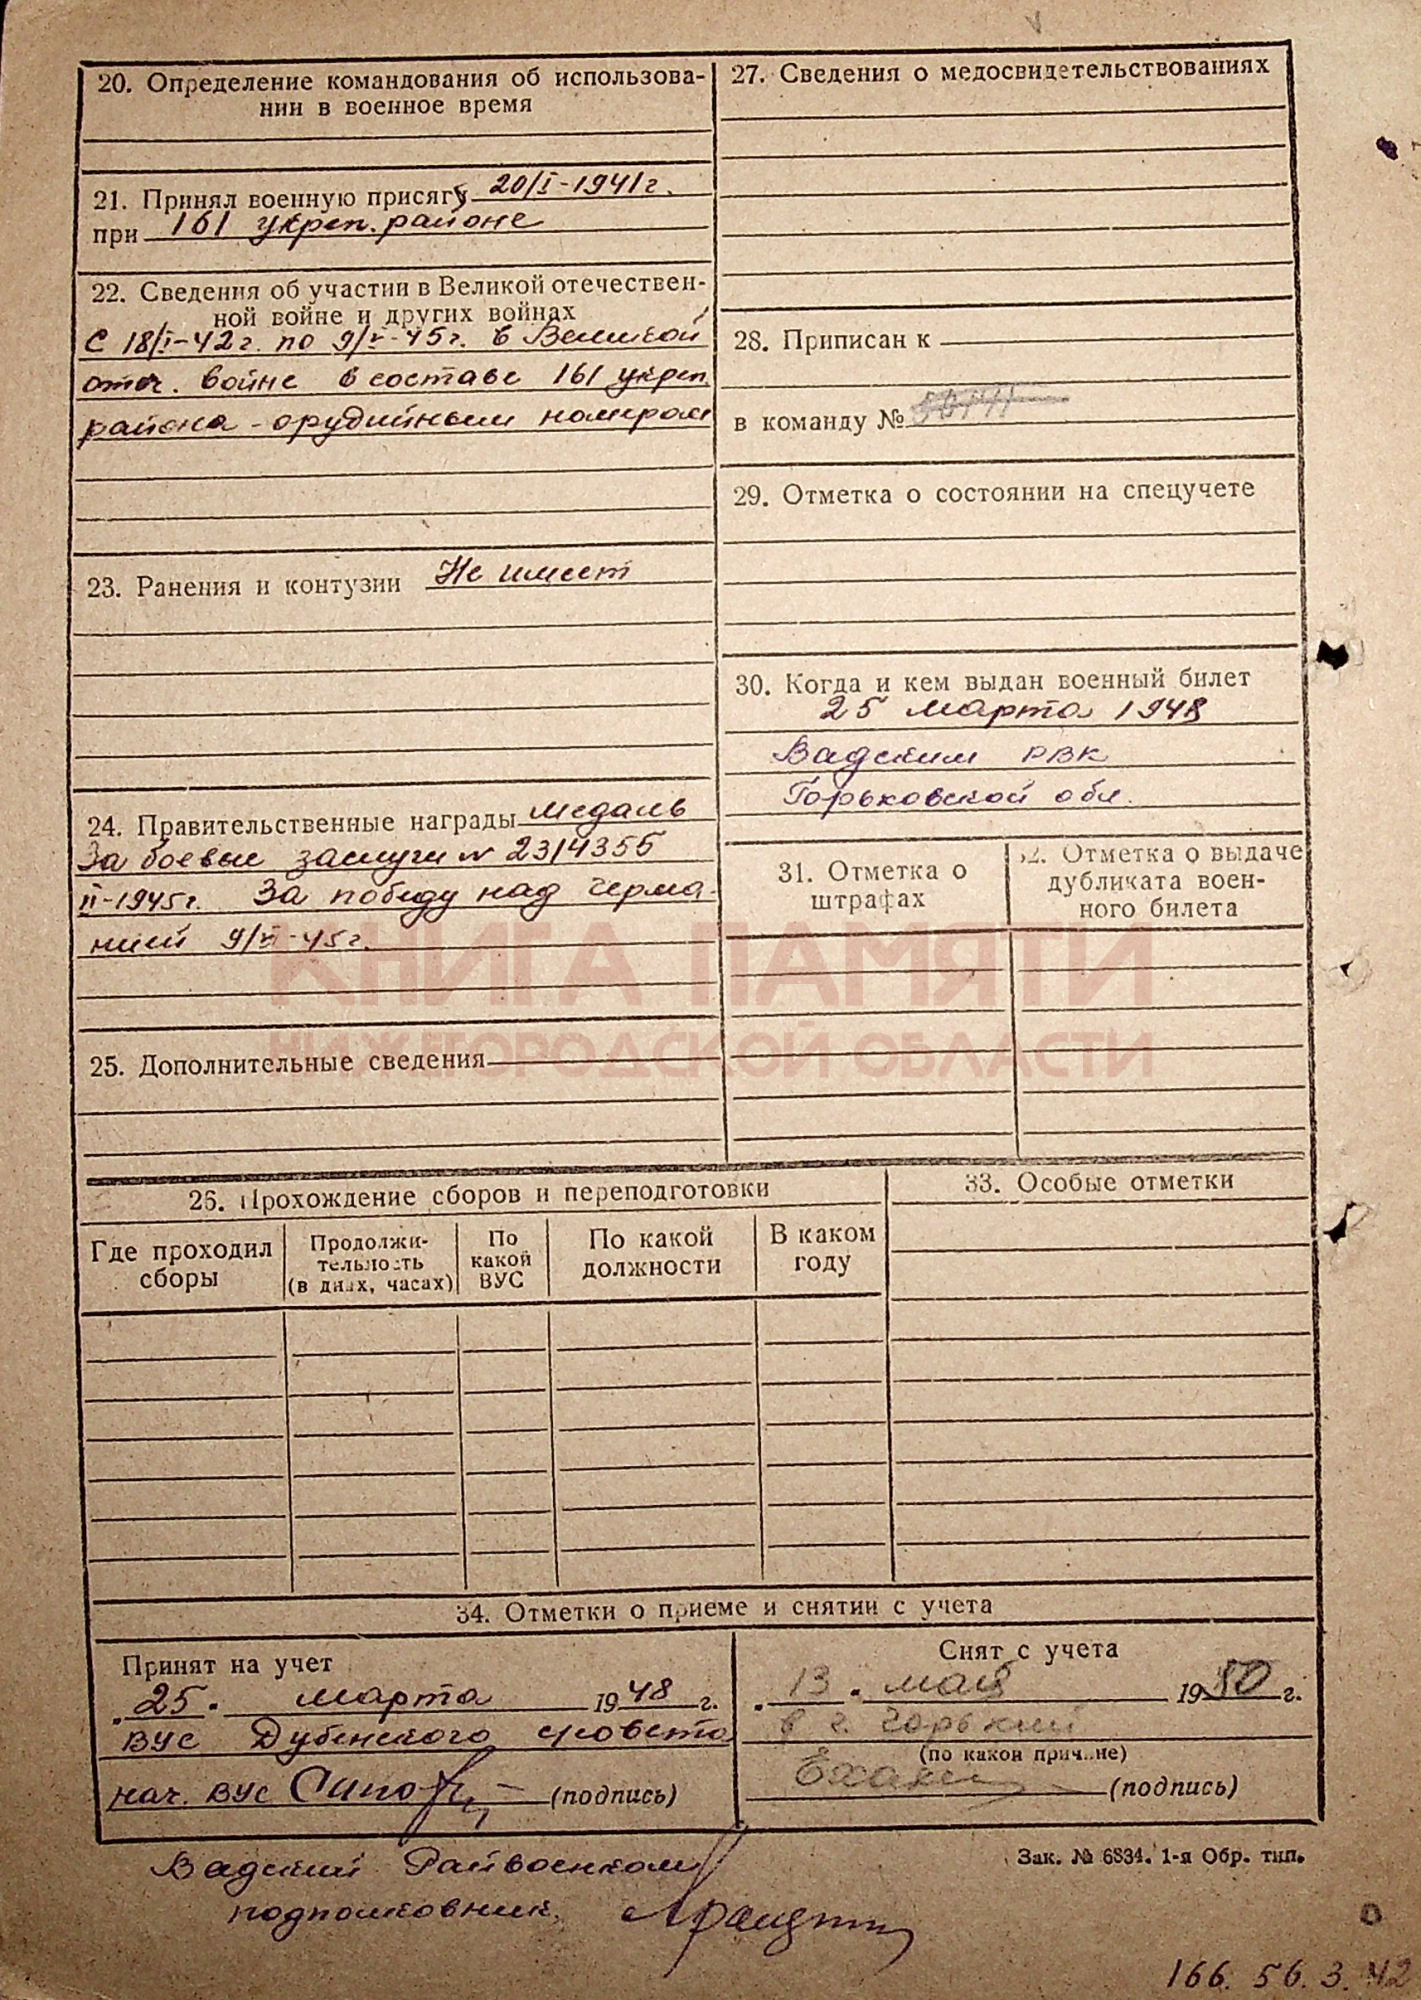 20. Определение командования об использова-
нии в военное время
21. Принял военную присягу 20/I-1941г.
при 161 укреп. районе
22. Сведения об участии в Великой отечествен-
ной войне и других войнах
С 18/I-42г. по 9/V-45г. в Великой
отеч. войне в составе 161 укреп.
района - орудийным номером
23. Ранения и контузии Не имеет
24. Правительственные награды медаль
За боевые заслуги N 2314355
II-1945г. За победу над Герма-
нией 9/VI-45г.
25. Дополнительные сведения
27. Сведения о медосвидетельствованиях
28. Приписан к
в команду №
29. Отметка о состоянии на спецучете
30. Когда и кем выдан военный билет
25 марта 1948
Вадским РВК
Горьковской обл.
31. Отметка о
штрафах
32. Отметка о выдаче
дубликата воен-
ного билета
КНИГА ПАМЯТИ
НИЖЕГОРОДСКОЙ ОБЛАСТИ
26. Прохождение сборов и переподготовки
Где проходил
сборы
Продолжи-
тельность
(в днях, часах)
По
какой
ВУС
По какой
должности
В каком
году
33. Особые отметки
34. Отметки о приеме и снятии с учета
Принят на учет
"25" марта 1948 г.
ВУС Дубенского с/совета
нач. ВУС (подпись)
Снят с учета
"13" мая 1950 г.
в г. Горький
(по какой причине)
(подпись)
Вадский Райвоенком
подполковник
Зак. № 6834. 1-я Обр. тип.
166. 56. 3. 42